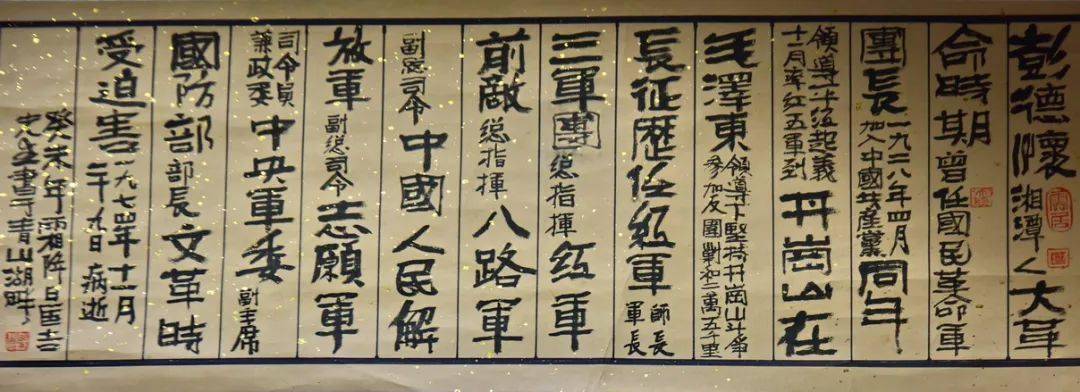 彭德懷湘潭人大革
命時期曾任國民革命軍
團長一九二八年四月
加入中國共產黨同年
領導平江起義
十二月率红五軍到井崗山在
毛澤東領導下堅持井崗山斗爭
參加反圍剿和二萬五千里
長征歷任红軍師長
軍長
三軍團總指揮红軍
前敵總指揮八路軍
副總司令中國人民解
放軍副總司令志願軍
司令員
兼政委中央軍委副主席
國防部部長文革時
受迫害一九七四年十一月
二十九日病逝
癸未年霜降旦吉
書于青山湖畔